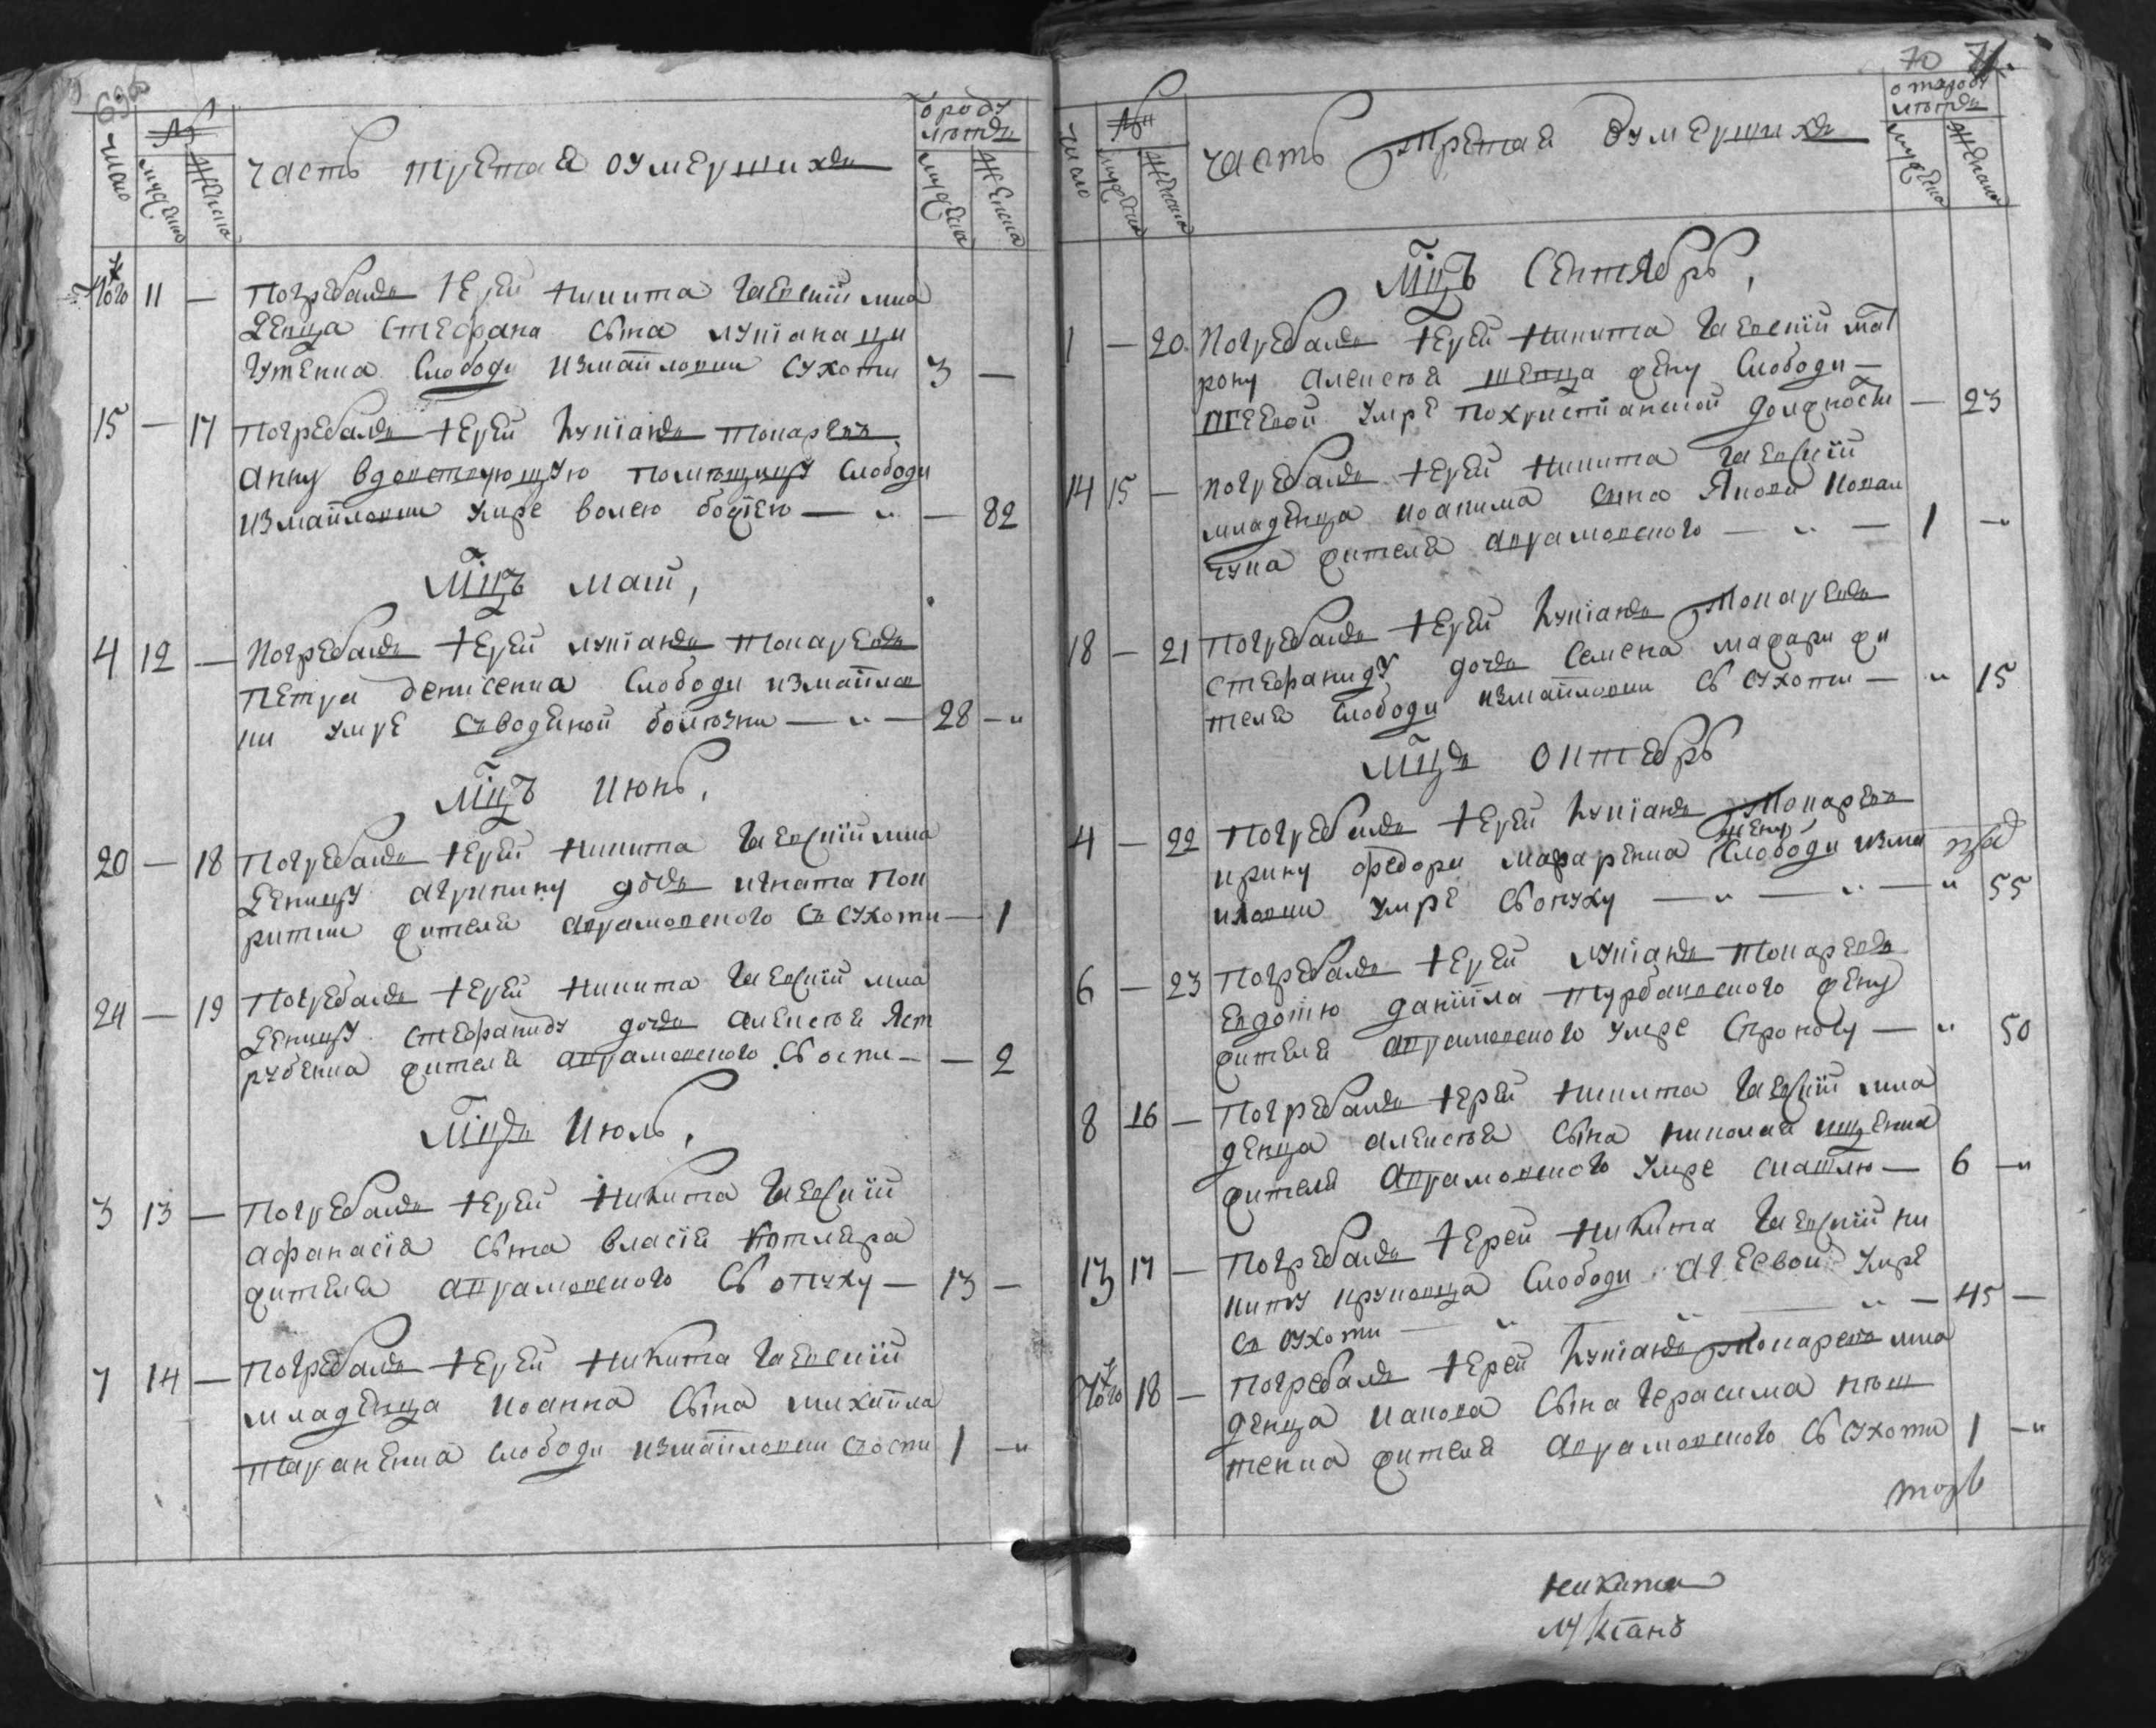 69об
число
№
мужеска
женска
часть третая оумершихъ
от роду
лѣтъ
мужеска
женска
Того ж 11 — Погребалъ Іерей Никита Гаевскїй мла
денца Стефана сына Лукїана
слободы Измайловки сухоти 3 —
15 — 17 Погребалъ Іерей Лукїанъ Токаревъ
Анну вдовствующую помѣщицу слободи
Измайловки умре волею божїею — 82
Мцъ Маїй,
4 12 — Погребалъ Іерей Лукїанъ Токаревъ
Петра Денисенка слободи Измайлов
ки умре съ водяной болѣзни — 28 —
Мцъ Июнь,
20 — 18 Погребалъ Іерей Никита Гаевскїй мла
деницу Агрипину дочь Игната Пок
ритки жителя Аврамовского съ сухоти — 1
24 — 19 Погребалъ Іерей Никита Гаевскїй мла
деницу Стефаниду дочь Алексѣя Яст
рубенка жителя Аврамовского съ оспи — 2
Мцъ Июль,
3 13 — Погребалъ Іерей Никита Гаевскїй
Афанасїя сына Власїя Котляра
жителя Аврамовского съ опуху — 13 —
7 14 — Погребалъ Іерей Никита Гаевскїй
младенца Иоанна сына Михайла
Тараненка слободи Измайловки с оспи 1 —
70 71.
число
№
мужеска
женска
часть третая оумершихъ
от роду
лѣтъ
мужеска
женска
Мцъ Сентябрь,
1 — 20 Погребалъ Іерей Никита Гаевскїй мат
рону Алексѣя Шевца жену слободи —
умре по христианской должности — 23
14 15 — Погребалъ Іерей Никита Гаевскїй
младенца Иоакима сына Якова Ковал
чука жителя Аврамовского — 1 —
18 — 21 Погребалъ Іерей Лукїанъ Токаревъ
Стефаниду дочь Семена Мажари жи
теля слободи Измайловки съ сухоти — 15
Мцъ Октябрь
4 — 22 Погребалъ Іерей Лукїанъ Токаревъ
Ирину Федора Макаренка жену слободи Изма
иловки умре съ опуху — 55
6 — 23 Погребалъ Іерей Лукїанъ Токаревъ
Евдотїю Данїила Турбаевского жену
жителя Аврамовского умре — 50
8 16 — Погребалъ Іерей Никита Гаевскїй мла
денца Алексѣя сына Николая Ищенка
жителя Аврамовского умре — 6 —
13 17 — Погребалъ Іерей Никита Гаевскїй Ни
киту слободи Агѣевой умре
съ сухоти — 45 —
Того ж 18 — Погребалъ Іерей Лукїанъ Токаревъ мла
денца Иакова сына Герасима
жителя Аврамовского съ сухоти 1 —
Никита
Лукїанъ